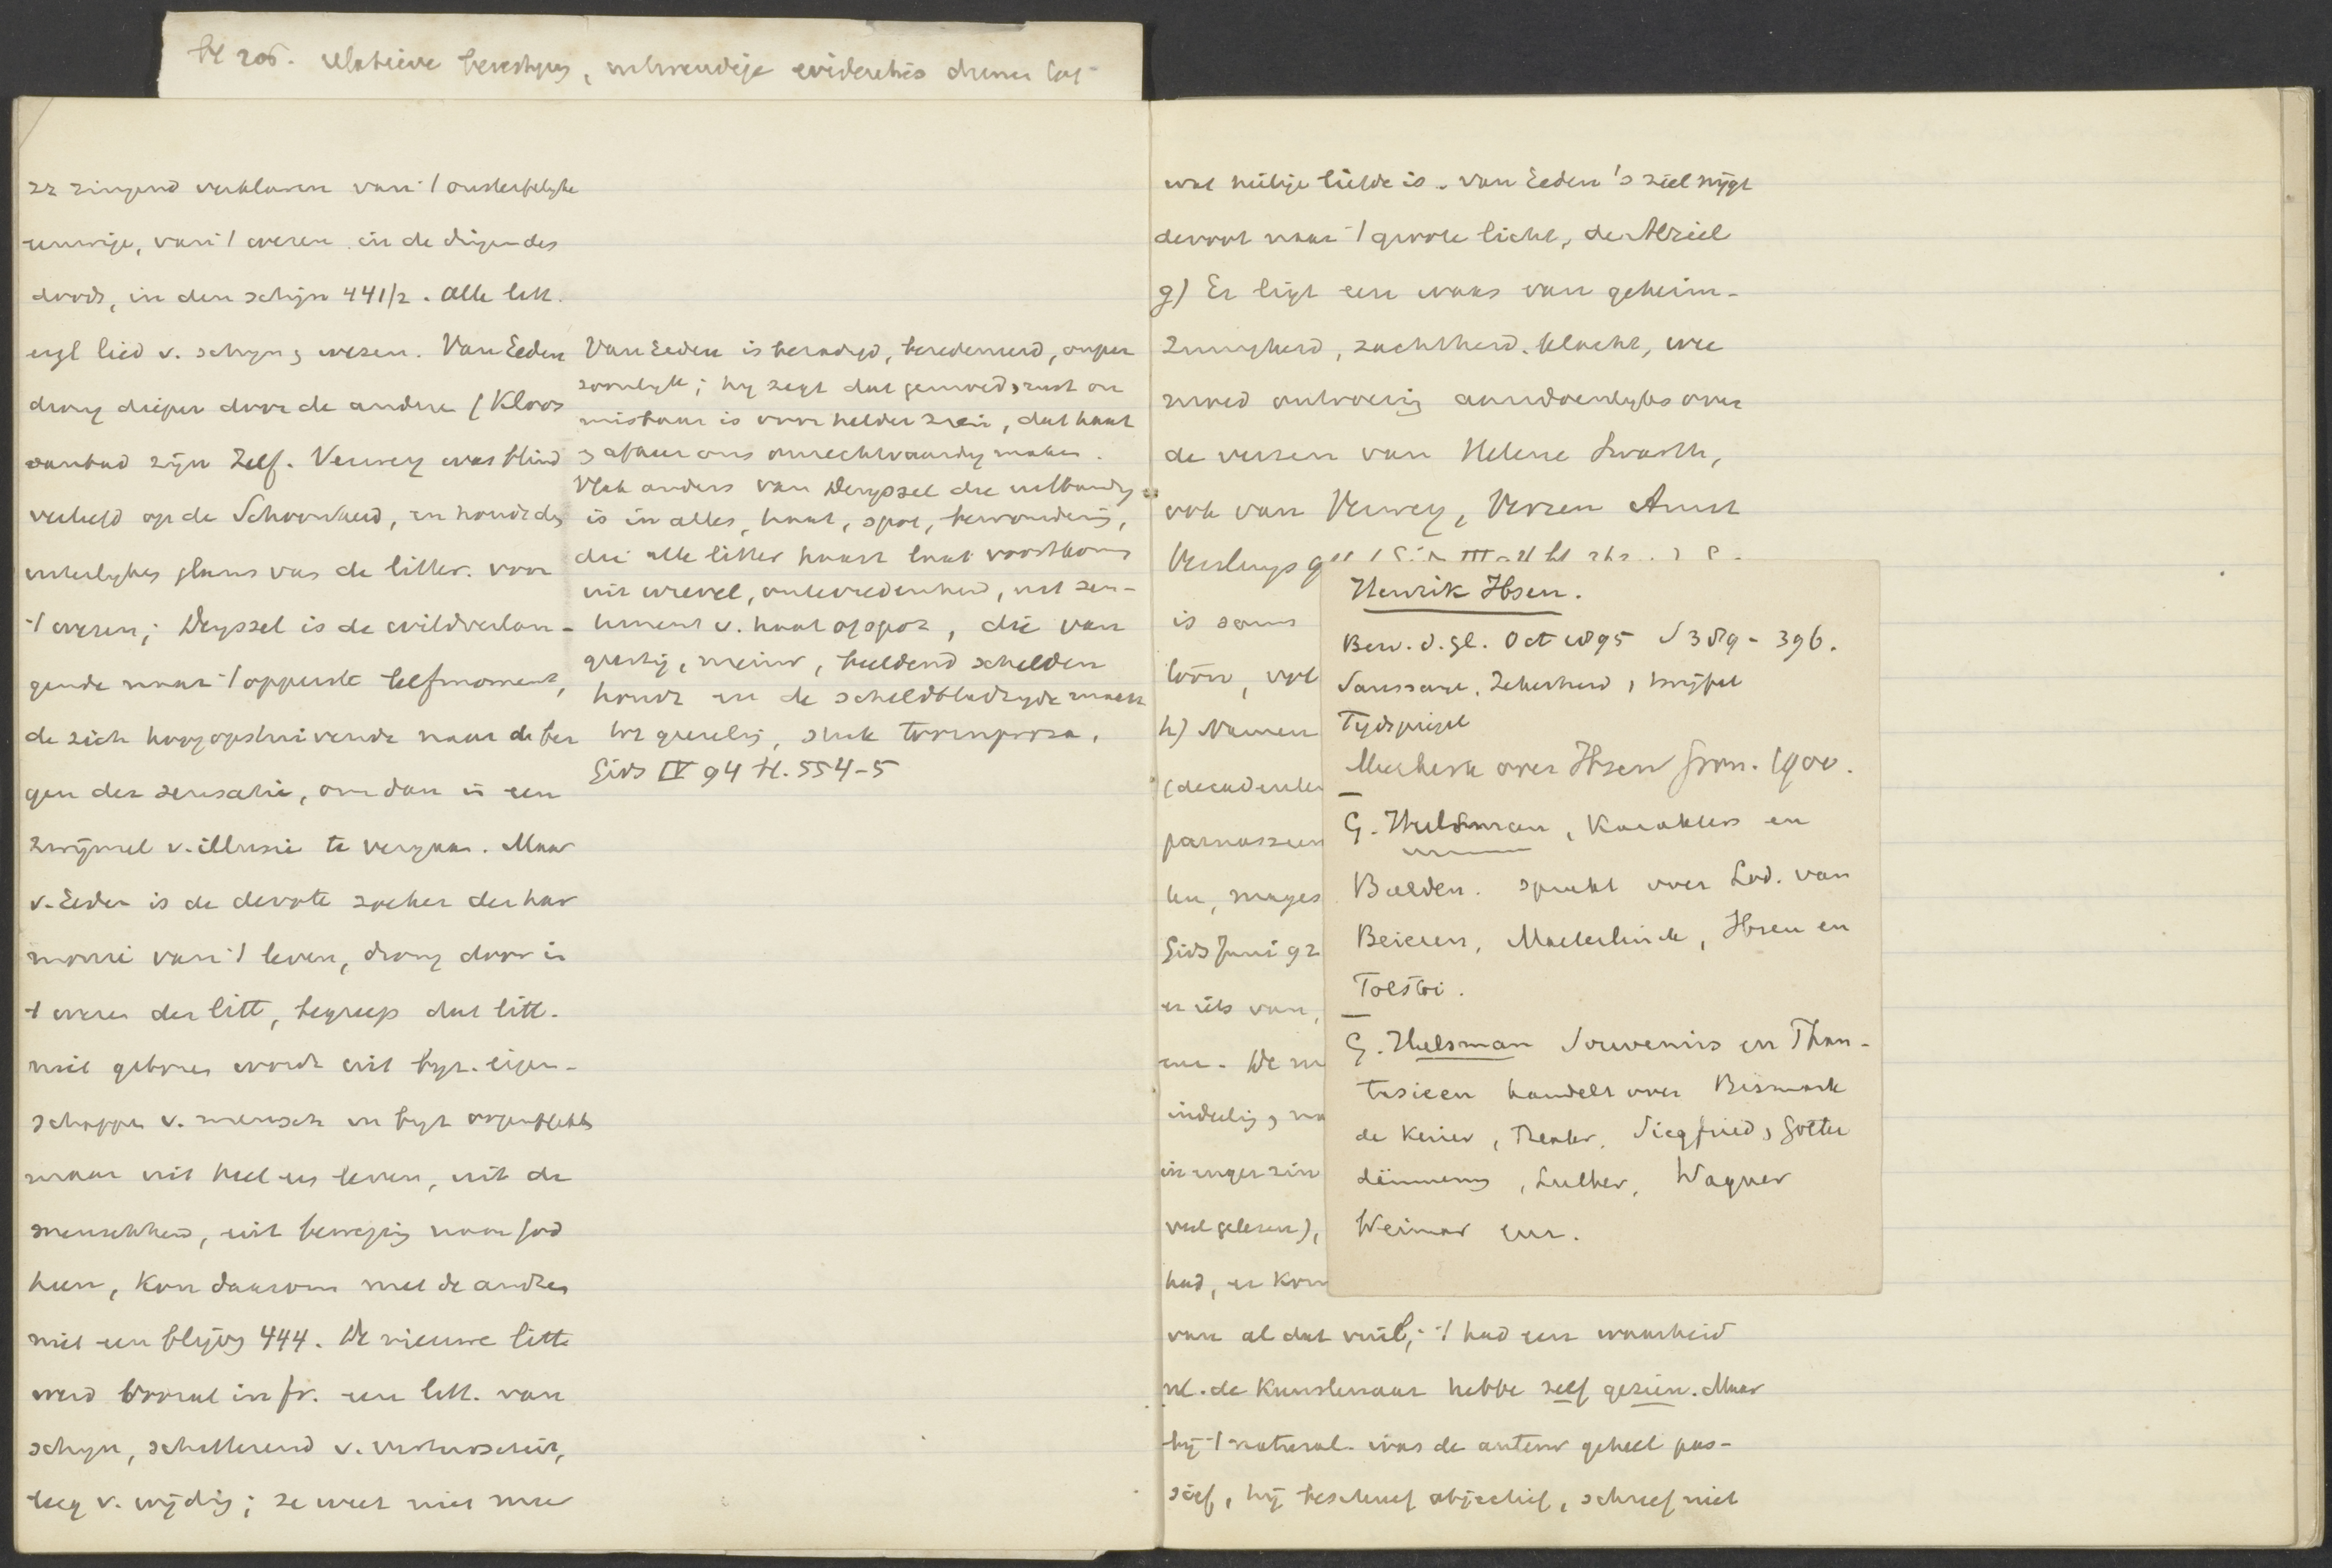 bl 205. relatieve bevestiging, noodwendige evidenties
ze zingend verklaren van 't onsterfelijke
eeuwige, van 't wezen in de dingen des
doods, in den schijn 441/2. Alle litt.
Van Eeden
drong dieper door de andere (Kloos
aanbad zijn Zelf. Verwey was blind
verliefd op de Schoonheid, en houdt de
uiterlijken glans van de litter. voor
't wezen; Deyssel is de wildverlan-
gende naar 't opperste leefmoment,
de zich hoog opstuivende naar de ber
gen der sensatie, om dan in een
zwijmel v. illusie te vergaan. Maar
v. Eeden is de devote zoeker der har
monie van 't leven, drong door in
t wezen der litt, begreep dat litt.
niet geboren wordt uit byz. eigen-
schappen v. mensch en byz oogenblikken
maar uit heel een leven, uit de
menschheid, uit beweging naar God
heen, kon daarom met de andren
niet een blijven 444. De nieuwe litt
werd vooral in fr. een litt. van
schijn, schitterend v.
leeg v. wijding; ze weet niet meer
Van Eeden is beradigd, beredeneerd, onper
soonlijk; hij zegt dat gemoedsrust on
misbaar is voor helder zien, dat haat
en afkeer ons onrechtvaardig maken.
Vlak anders van Deyssel die uitbundig
is in alles, haat, spot, bewondering,
die alle litter haast laat voortkomen
uit wrevel, ontevredenheid, uit sen-
timent v. haat of spot, die van
geestig, mooi, beeldend schelden
houdt en de scheldbladzijde maakt
tot geurelig, stuk toornproza.
Gids IV 94 bl. 554-5
wat heilige liefde is. van Eeden's ziel nijgt
devoot naar 't groote licht, de Alziel
g) Er ligt een waas van geheim-
zinnigheid, zachtheid, klacht, wee
moed ontroering aandoenlijks over
de verzen van Helene Swarth,
ook van Verwey, Verzen
is soms
toon, vol
h) Namen
(decadenten
parnassien
ten, mages
Gids Juni 92
er iets van,
De
indeeling,
in enger zin
veel gelezen),
had, er kom
van al dat vuil; 't had een waarheid
nl. de kunstenaar hebbe zelf gezien. Maar
bij 't natural. was de auteur geheel pas-
sief, hij beschreef objectief, schreef niet
Henrik Ibsen.
Bew. d. gl. Oct 1895 S 389-396.
Saussaye, Zekerheid, twijfel
Tijdspiegel
Meerkerk over Ibsen Gron. 1900.
G. Hulsman, Karakters en
Beelden. spreekt over Lod. van
Beieren, Maeterlinck, Ibsen en
Tolstoi.
G. Hulsman Souvenirs en Phan-
tasieen handelt over Bismarck
de Keizer, Theater, Siegfried, Götter
dämmerung, Luther, Wagner
Weimar enz.